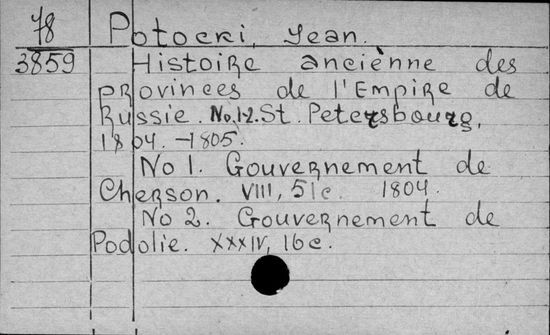 78
3859
Potocki, Jean.
Histoire anciènne des
provinces de l'Empire de
Russie. No. 1-2. St. Petersbourg,
1804. -1805.
No 1. Gouvernement de
Cherson. VIII, 51c. 1804.
No 2. Gouvernement de
Podolie. XXXIV, 16c.